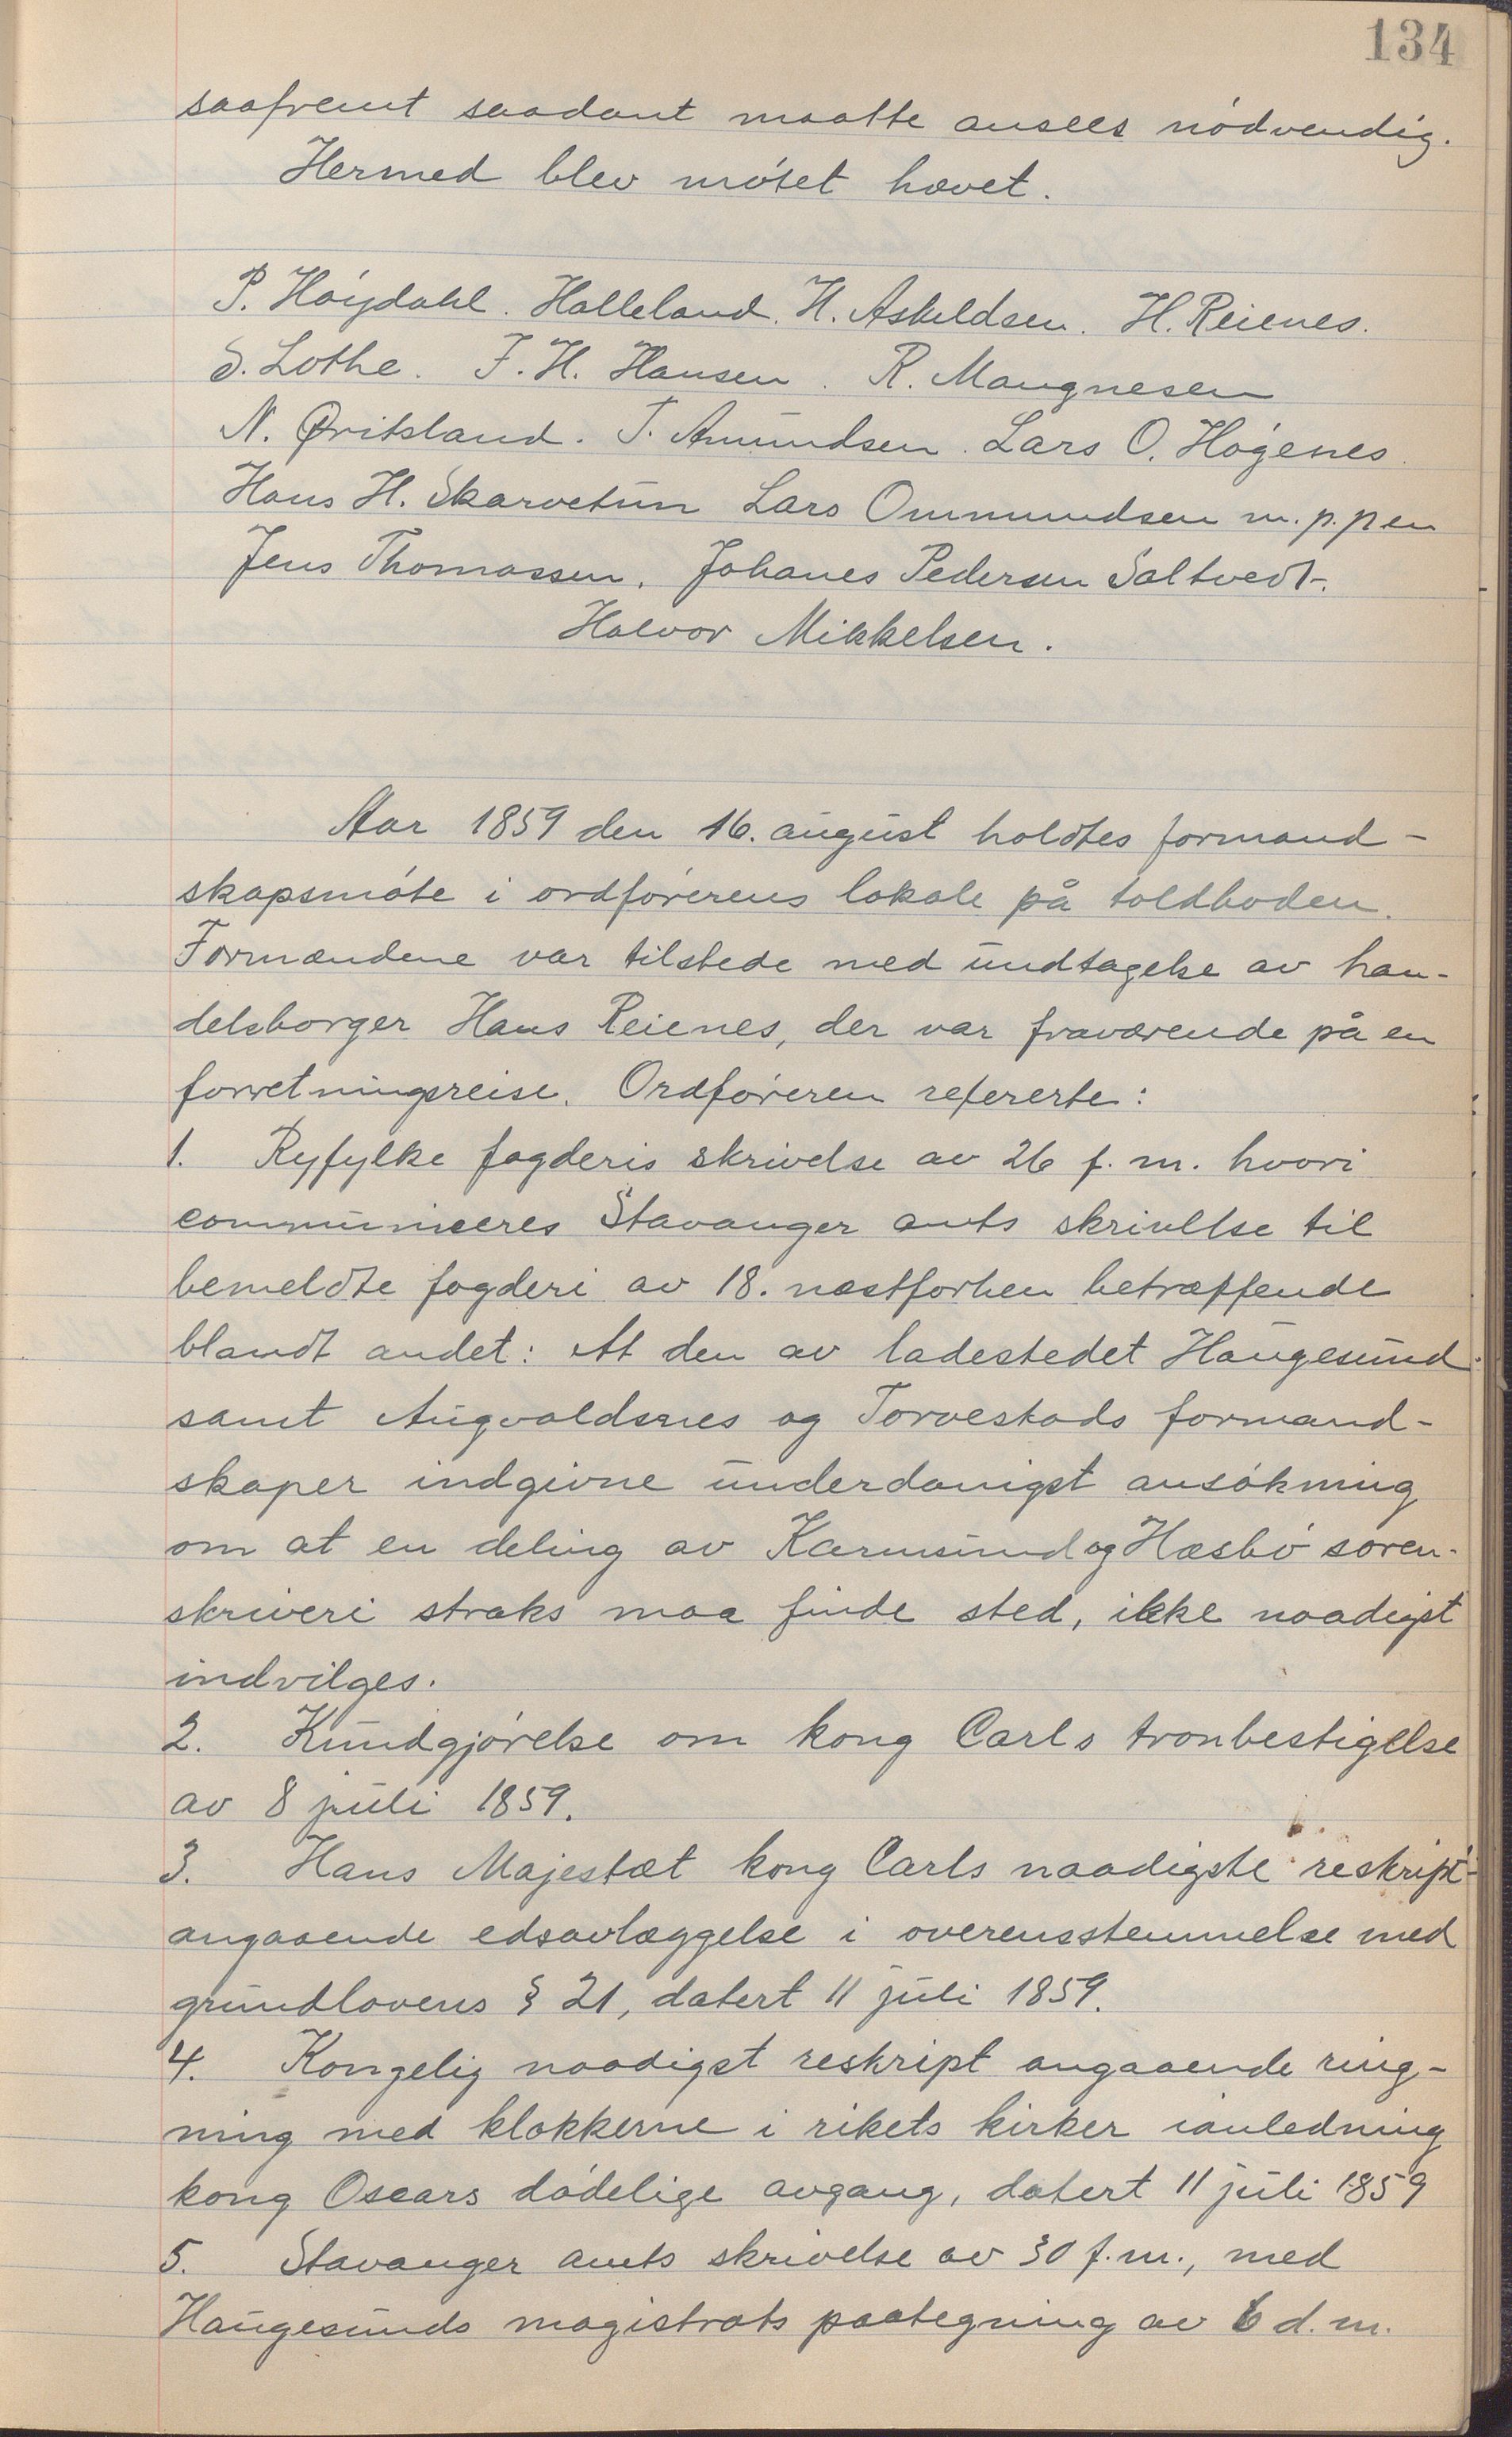 134
saafremt saadant maatte ansees nödvendig.
Hermed blev mötet hævet.
P. Höydahl. Halleland. H. Askeldsen. H. Reienes.
S. Lothe. J. H. Hansen. R. Mangnesen
N. Øvitsland. T. Amundsen. Lars O. Högenes.
Hans H. Skarvetun Lars Ommundsen m. p. pen
Jens Thomassen. Johanes Pedersen Saltvedt.
Halvor Mikkelsen.
Aar 1859 den 16. august holdtes formand-
skapsmöte i ordförerens lokale på toldboden.
Formændene var tilstede med undtagelse av han-
delsborger Hans Reienes, der var fraværende på en
forretningsreise. Ordföreren refererte:
1. Ryfylke fogderis skrivelse av 26 f. m. hvori
communiceres Stavanger amts skrivelse til
bemeldte fogderi av 18. næstforhen betræffende
blandt andet: At den av ladestedet Haugesund
samt Augvaldsnes og Torvestads formand-
skaper indgivne underdanigst ansökning
om at en deling av Karmsund og Hæsbö soren-
skriveri straks maa finde sted, ikke naadigst
indvilges.
2. Kundgjörelse om kong Carls tronbestigelse
av 8 juli 1859.
3. Hans Majestæt kong Carls naadigste reskript-
angaaende edsavlæggelse i overensstemmelse med
grundlovens § 21, datert 11 juli 1859.
4. Kongelig naadigst reskript angaaende ring-
ning med klokkerne i rikets kirker ianledning
kong Oscars dödelige avgang, datert 11 juli 1859
5. Stavanger amts skrivelse av 30 f. m., med
Haugesunds magistrats paategning av 6 d. m.